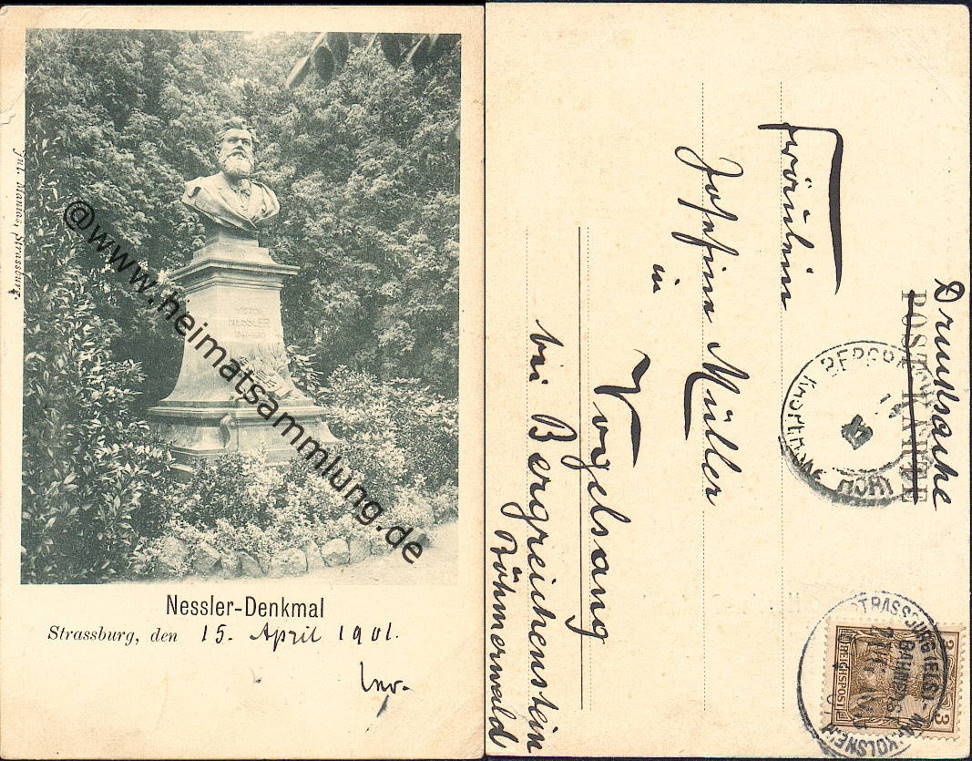 Jul. Manias, Strassburg.
VICTOR
NESSLER
@www.heimatsammlung.de
Nessler-Denkmal
Strassburg, den 15. April 1901.
Drucksache
POSTKARTE
Fräulein
Josefine Müller
in
Vogelsang
bei Bergreichenstein
Böhmerwald
STRASSBURG (ELS.)
BAHNPOST
3 3
REICHSPOST